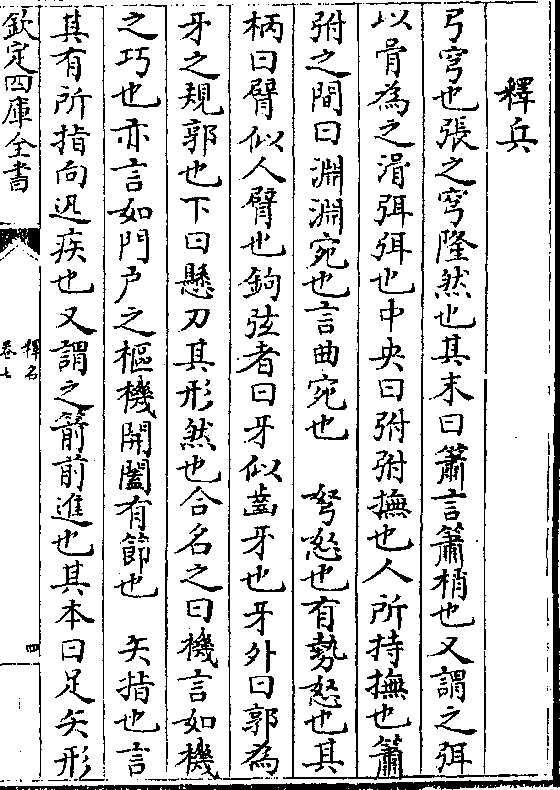 釋兵
弓穹也張之穹隆然也其末曰簫言簫梢也又謂之弭
以骨為之滑弭弭也中央曰弣弣撫也人所持撫也簫
弣之間曰淵淵宛也言曲宛也　弩怒也有勢怒也其
柄曰臂似人臂也鉤弦者曰牙似齒牙也牙外曰郭為
牙之規郭也下曰懸刀其形然也合名之曰機言如機
之巧也亦言如門户之樞機開闔有節也　矢指也言
其有所指向迅疾也又謂之箭前進也其本曰足矢形
欽定四庫全書
釋名
卷七
四